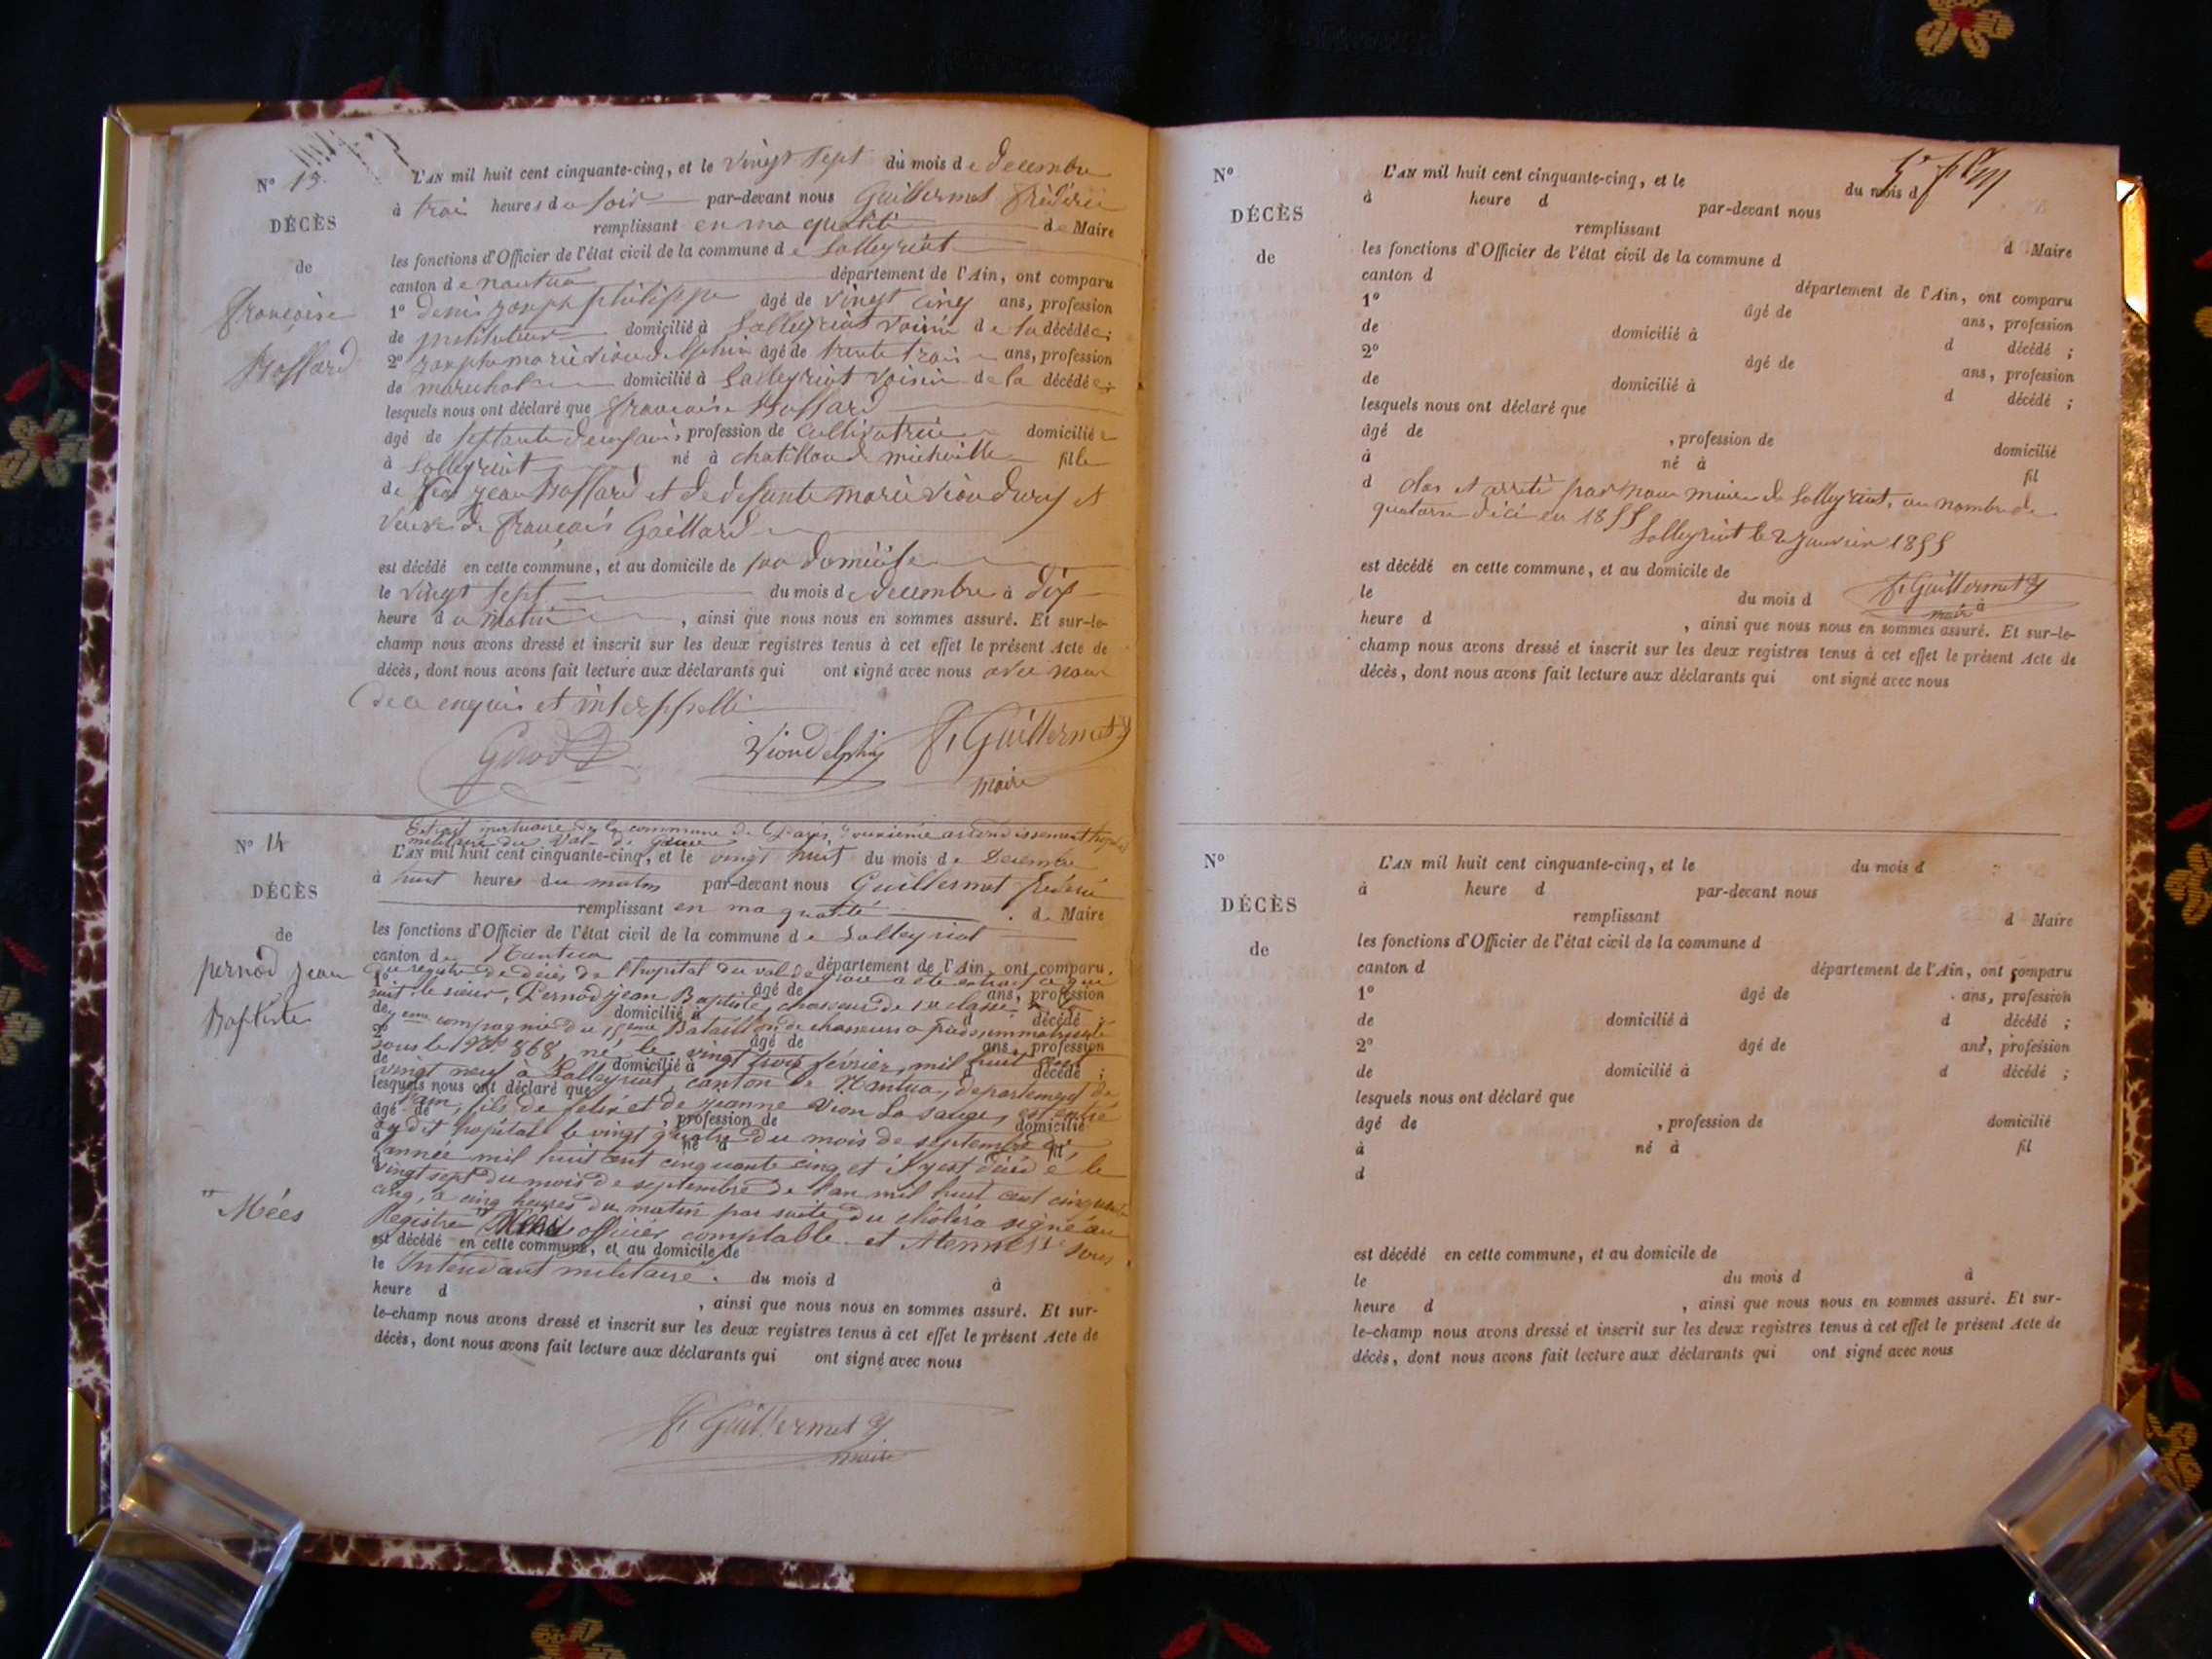 N° 13.
DÉCÈS
de
françoise
Boffard
L'AN mil huit cent cinquante-cinq, et le vingt sept du mois de decembre
à trois heures du soir par-devant nous Guillermet fréderic
remplissant en ma qualité de Maire
les fonctions d'Officier de l'état civil de la commune de Lalleyriat
canton de nantua département de l'Ain, ont comparu
1° denis joseph philippe âgé de vingt cinq ans, profession
de instituteur domicilié à Lalleyriat voisin de la décédée;
2° joseph marie viondelphin âgé de trente trois ans, profession
de marechal domicilié à Lalleyriat voisin de la décédée;
lesquels nous ont déclaré que françoise Boffard
âgé de septante deux ans, profession de cultivatrice domiciliée
à Lalleyriat né à chatillon de michaille fille
de feu jean Boffard et de defunte marie viondury et
veuve de françois Gaillard
est décédé en cette commune, et au domicile de son domicile
le vingt sept du mois de decembre à dix
heure du matin, ainsi que nous nous en sommes assuré. Et sur-le-
champ nous avons dressé et inscrit sur les deux registres tenus à cet effet le présent Acte de
décès, dont nous avons fait lecture aux déclarants qui ont signé avec nous avec nous
de ce enquis et interppellé
Viondelphin f. Guillermet
maire
N° 14
DÉCÈS
de
pernod jean
Baptiste
Mées
Extrait mortuaire de la commune de Paris douxième arrondissement hopital
militaire du Val-de Grace
L'AN mil huit cent cinquante-cinq, et le vingt huit du mois de Decembre
à huit heures du matin par-devant nous Guillermet fréderic
remplissant en ma qualité de Maire
les fonctions d'Officier de l'état civil de la commune de Lalleyriat
canton de Nantua département de l'Ain, ont comparu.
Du registre de décès de l'hopital du val de grace a été extrait ce qui
1° âgé de ans, profession
suit: le sieur, Pernod jean Baptiste, chasseur de 1re classe à la
de domicilié à d décédé;
eme compagnie du 15eme Bataillon de chasseurs a pied, immatriculé
2° âgé de ans, profession
sous le N° 868, né le vingt trois février, mil huit cent
de domicilié à d décédé;
vingt neuf à Lalleyriat, canton de Nantua, departement de
lesquels nous ont déclaré que
l'ain, fils de felix et de jeanne Vion La sauge, est entré
âgé de, profession de domicilié
au dit hopital le vingt quatre du mois de septembre de
à né à fil
l'année mil huit cent cinquante cinq et il y est décédé le
d
vingt sept du mois de septembre de l'an mil huit cent cinquante
cinq, à cinq heures du matin par suite du choléra signé au
Registre officier comptable et sous
est décédé en cette commune, et au domicile de
le Intendant militaire. du mois d à
heure d, ainsi que nous nous en sommes assuré. Et sur-
le-champ nous avons dressé et inscrit sur les deux registres tenus à cet effet le présent Acte de
décès, dont nous avons fait lecture aux déclarants qui ont signé avec nous
f. Guillermet
maire
N°
DÉCÈS
de
L'AN mil huit cent cinquante-cinq, et le du mois d
à heure d par-devant nous
remplissant d Maire
les fonctions d'Officier de l'état civil de la commune d
canton d département de l'Ain, ont comparu
1° âgé de ans, profession
de domicilié à d décédé;
2° âgé de ans, profession
de domicilié à d décédé;
lesquels nous ont déclaré que
âgé de, profession de domicilié
à né à fil
d clos et arrêté par nous maire de Lalleyriat, au nombre de
quatorze décé en 1855
Lalleyriat le 2 janvier 1855
est décédé en cette commune, et au domicile de
f. Guillermet
maire
le du mois d à
heure d, ainsi que nous nous en sommes assuré. Et sur-le-
champ nous avons dressé et inscrit sur les deux registres tenus à cet effet le présent Acte de
décès, dont nous avons fait lecture aux déclarants qui ont signé avec nous
N°
DÉCÈS
de
L'AN mil huit cent cinquante-cinq, et le du mois d
à heure d par-devant nous
remplissant d Maire
les fonctions d'Officier de l'état civil de la commune d
canton d département de l'Ain, ont comparu
1° âgé de ans, profession
de domicilié à d décédé;
2° âgé de ans, profession
de domicilié à d décédé;
lesquels nous ont déclaré que
âgé de, profession de domicilié
à né à fil
d
est décédé en cette commune, et au domicile de
le du mois d à
heure d, ainsi que nous nous en sommes assuré. Et sur-
le-champ nous avons dressé et inscrit sur les deux registres tenus à cet effet le présent Acte de
décès, dont nous avons fait lecture aux déclarants qui ont signé avec nous